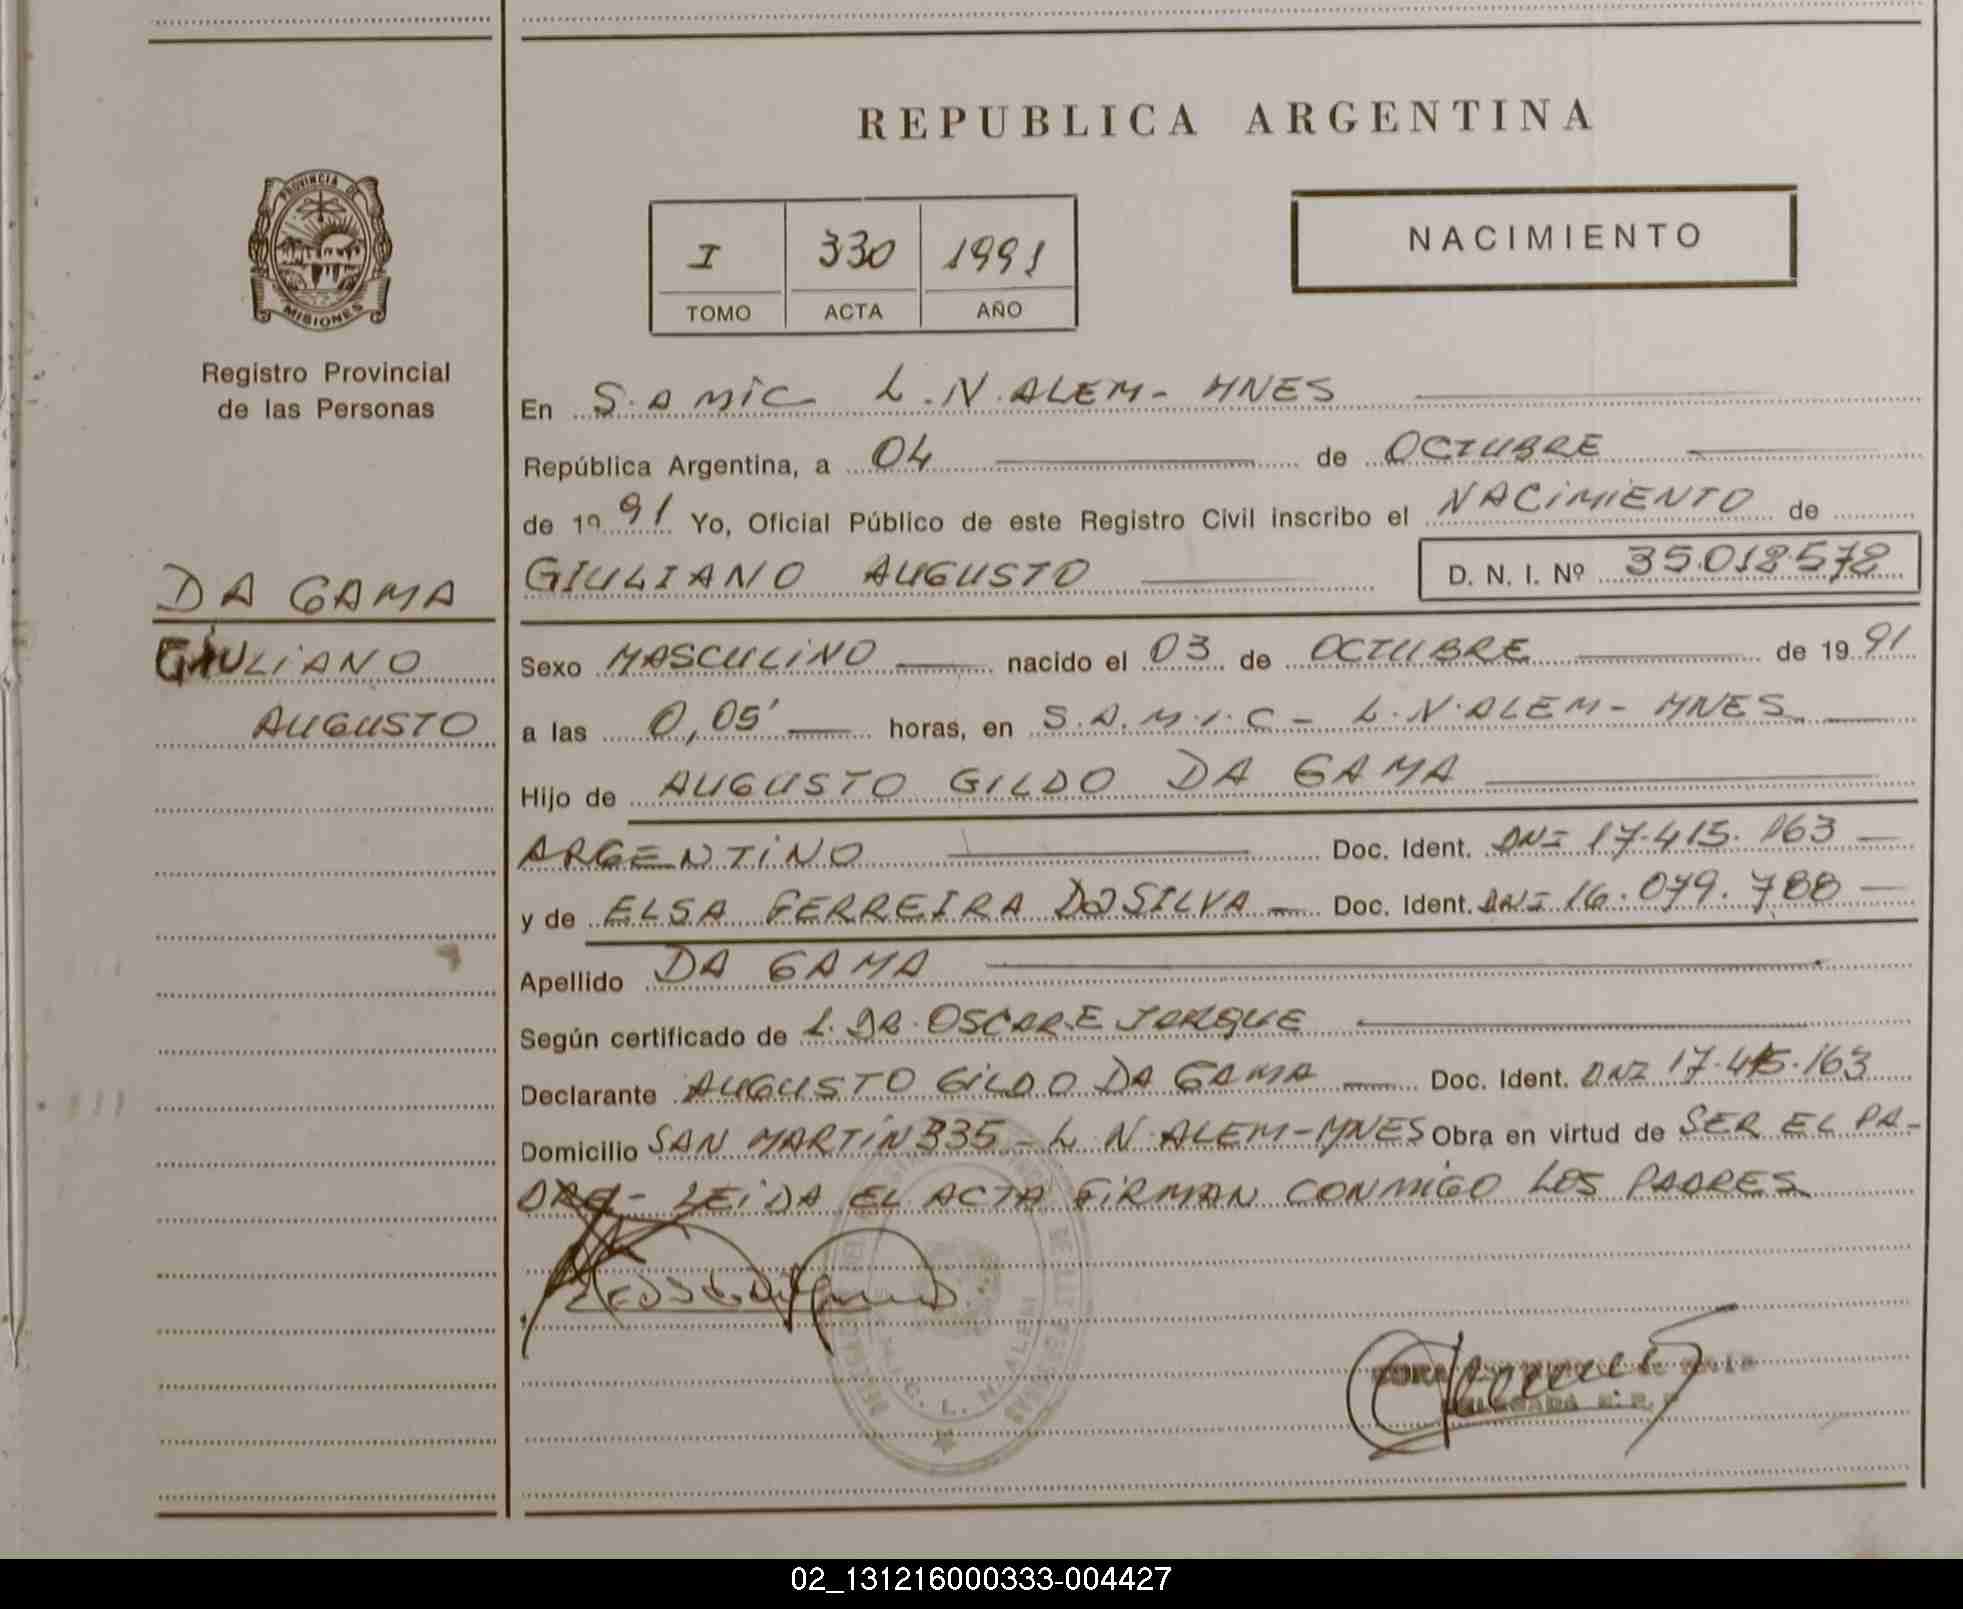 REPUBLICA ARGENTINA
PROVINCIA DE
MISIONES
Registro Provincial
de las Personas
I 330 1991
TOMO ACTA AÑO
NACIMIENTO
En S.A MIC L.N.ALEM- MNES
República Argentina, a 04 de OCTUBRE
de 19 91 Yo, Oficial Público de este Registro Civil inscribo el NACIMIENTO de
DA GAMA
GIULIANO
AUGUSTO
GIULIANO AUGUSTO D. N. I. Nº 35.018.572
Sexo MASCULINO nacido el 03 de OCTUBRE de 19 91
a las 0,05' horas, en S.A.M.I.C - L.N.ALEM- MNES
Hijo de AUGUSTO GILDO DA GAMA
ARGENTINO Doc. Ident. DNI 17.415.163
y de ELSA FERREIRA DASILVA - Doc. Ident. DNI 16.079.788
Apellido DA GAMA
Según certificado de L. DR. OSCAR E
Declarante AUGUSTO GILDO DA GAMA Doc. Ident. DNI 17.415.163
Domicilio SAN MARTIN 335 - L N ALEM-MNES Obra en virtud de SER EL PA-
DRE- LEIDA EL ACTA FIRMAN CONMIGO LOS PADRES
L. N. ALEM
02_131216000333-004427